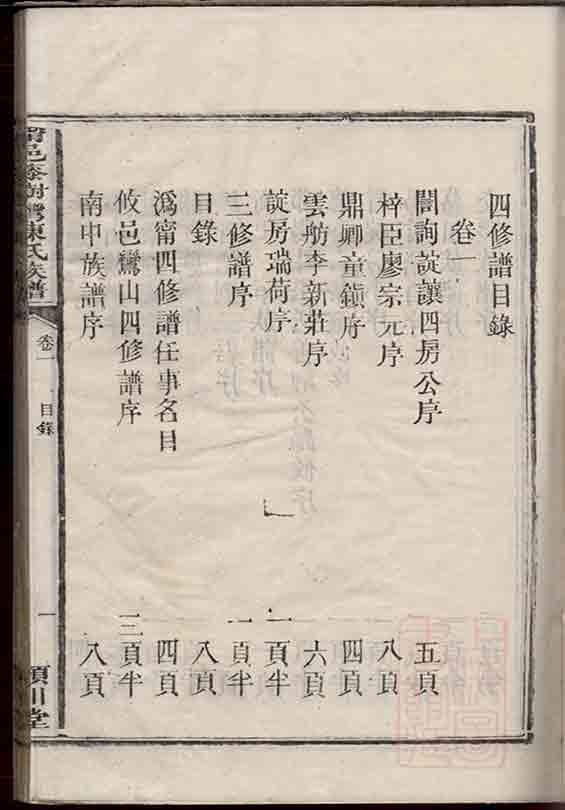 四修譜目錄
卷一
誾詢諚讓四房公序 五頁
梓臣廖宗元序 八頁
鼎卿童鎮序 四頁
雲舫李新莊序 六頁
諚房瑞荷序 一頁半
三修譜序 一頁半
目錄 八頁
溈甯四修譜任事名目 四頁
攸邑鸞山四修譜序 三頁半
南中族譜序 八頁
甯邑 陳氏族譜
卷一
目錄
一
潁川堂